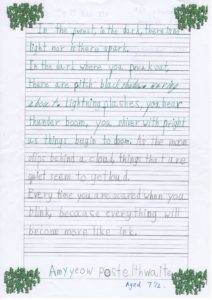 In the forest, in the dark, there is no
light nor is there spark.
In the dark where you peak out,
there are pitch black shadows
about. Lightning flashes, you hear
thunder boom, you shiver with fright
as things begin to doom. As the moon
slips behind a cloud, things that are
quiet seem to get loud.
Every time you are scared when you
blink, because everything will
become more like ink.
Amy yeow postelthwaite
Aged 7½.